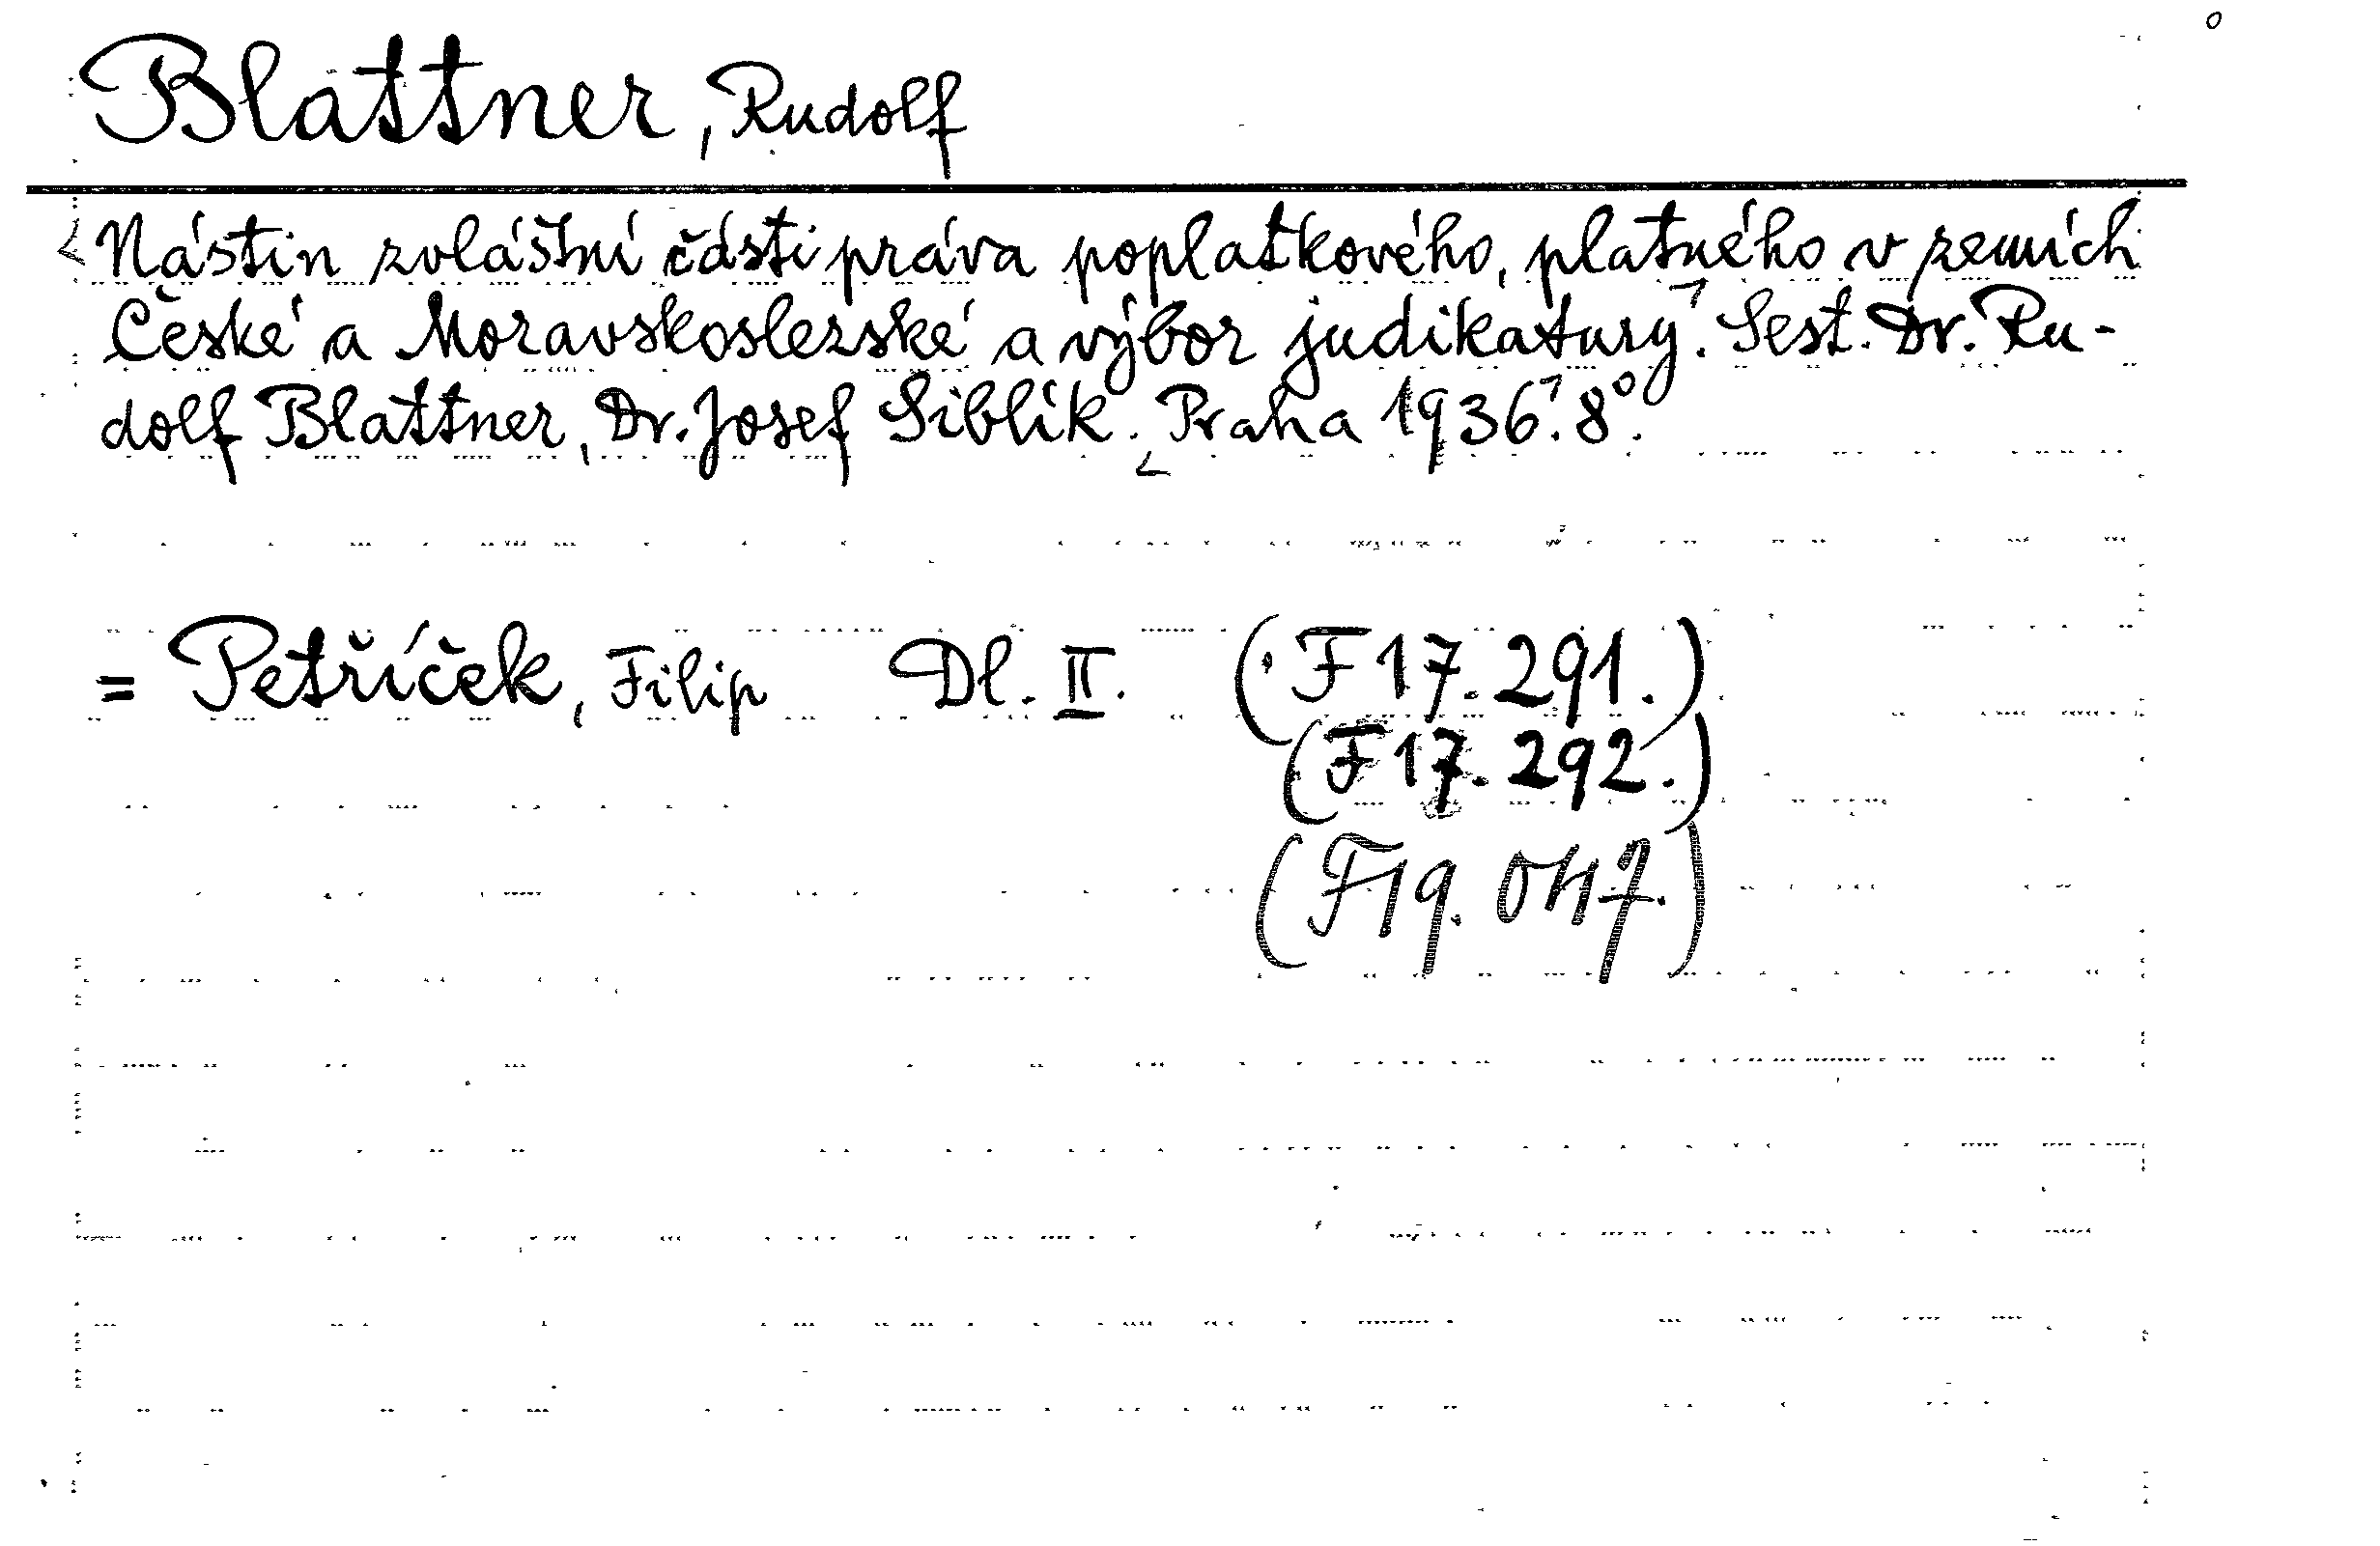 Blattner, Rudolf
<Nástin zvláštní části práva poplatkového, platného v zemích
České a Moravskoslezské a výbor judikatury>. Sest. Dr. Ru-
dolf Blattner, Dr. Josef Siblík. <Praha 1936>. 8°.
= Petříček, Filip Dl. II. (F 17.291.)
(F 17.292.)
(F 19.047.)